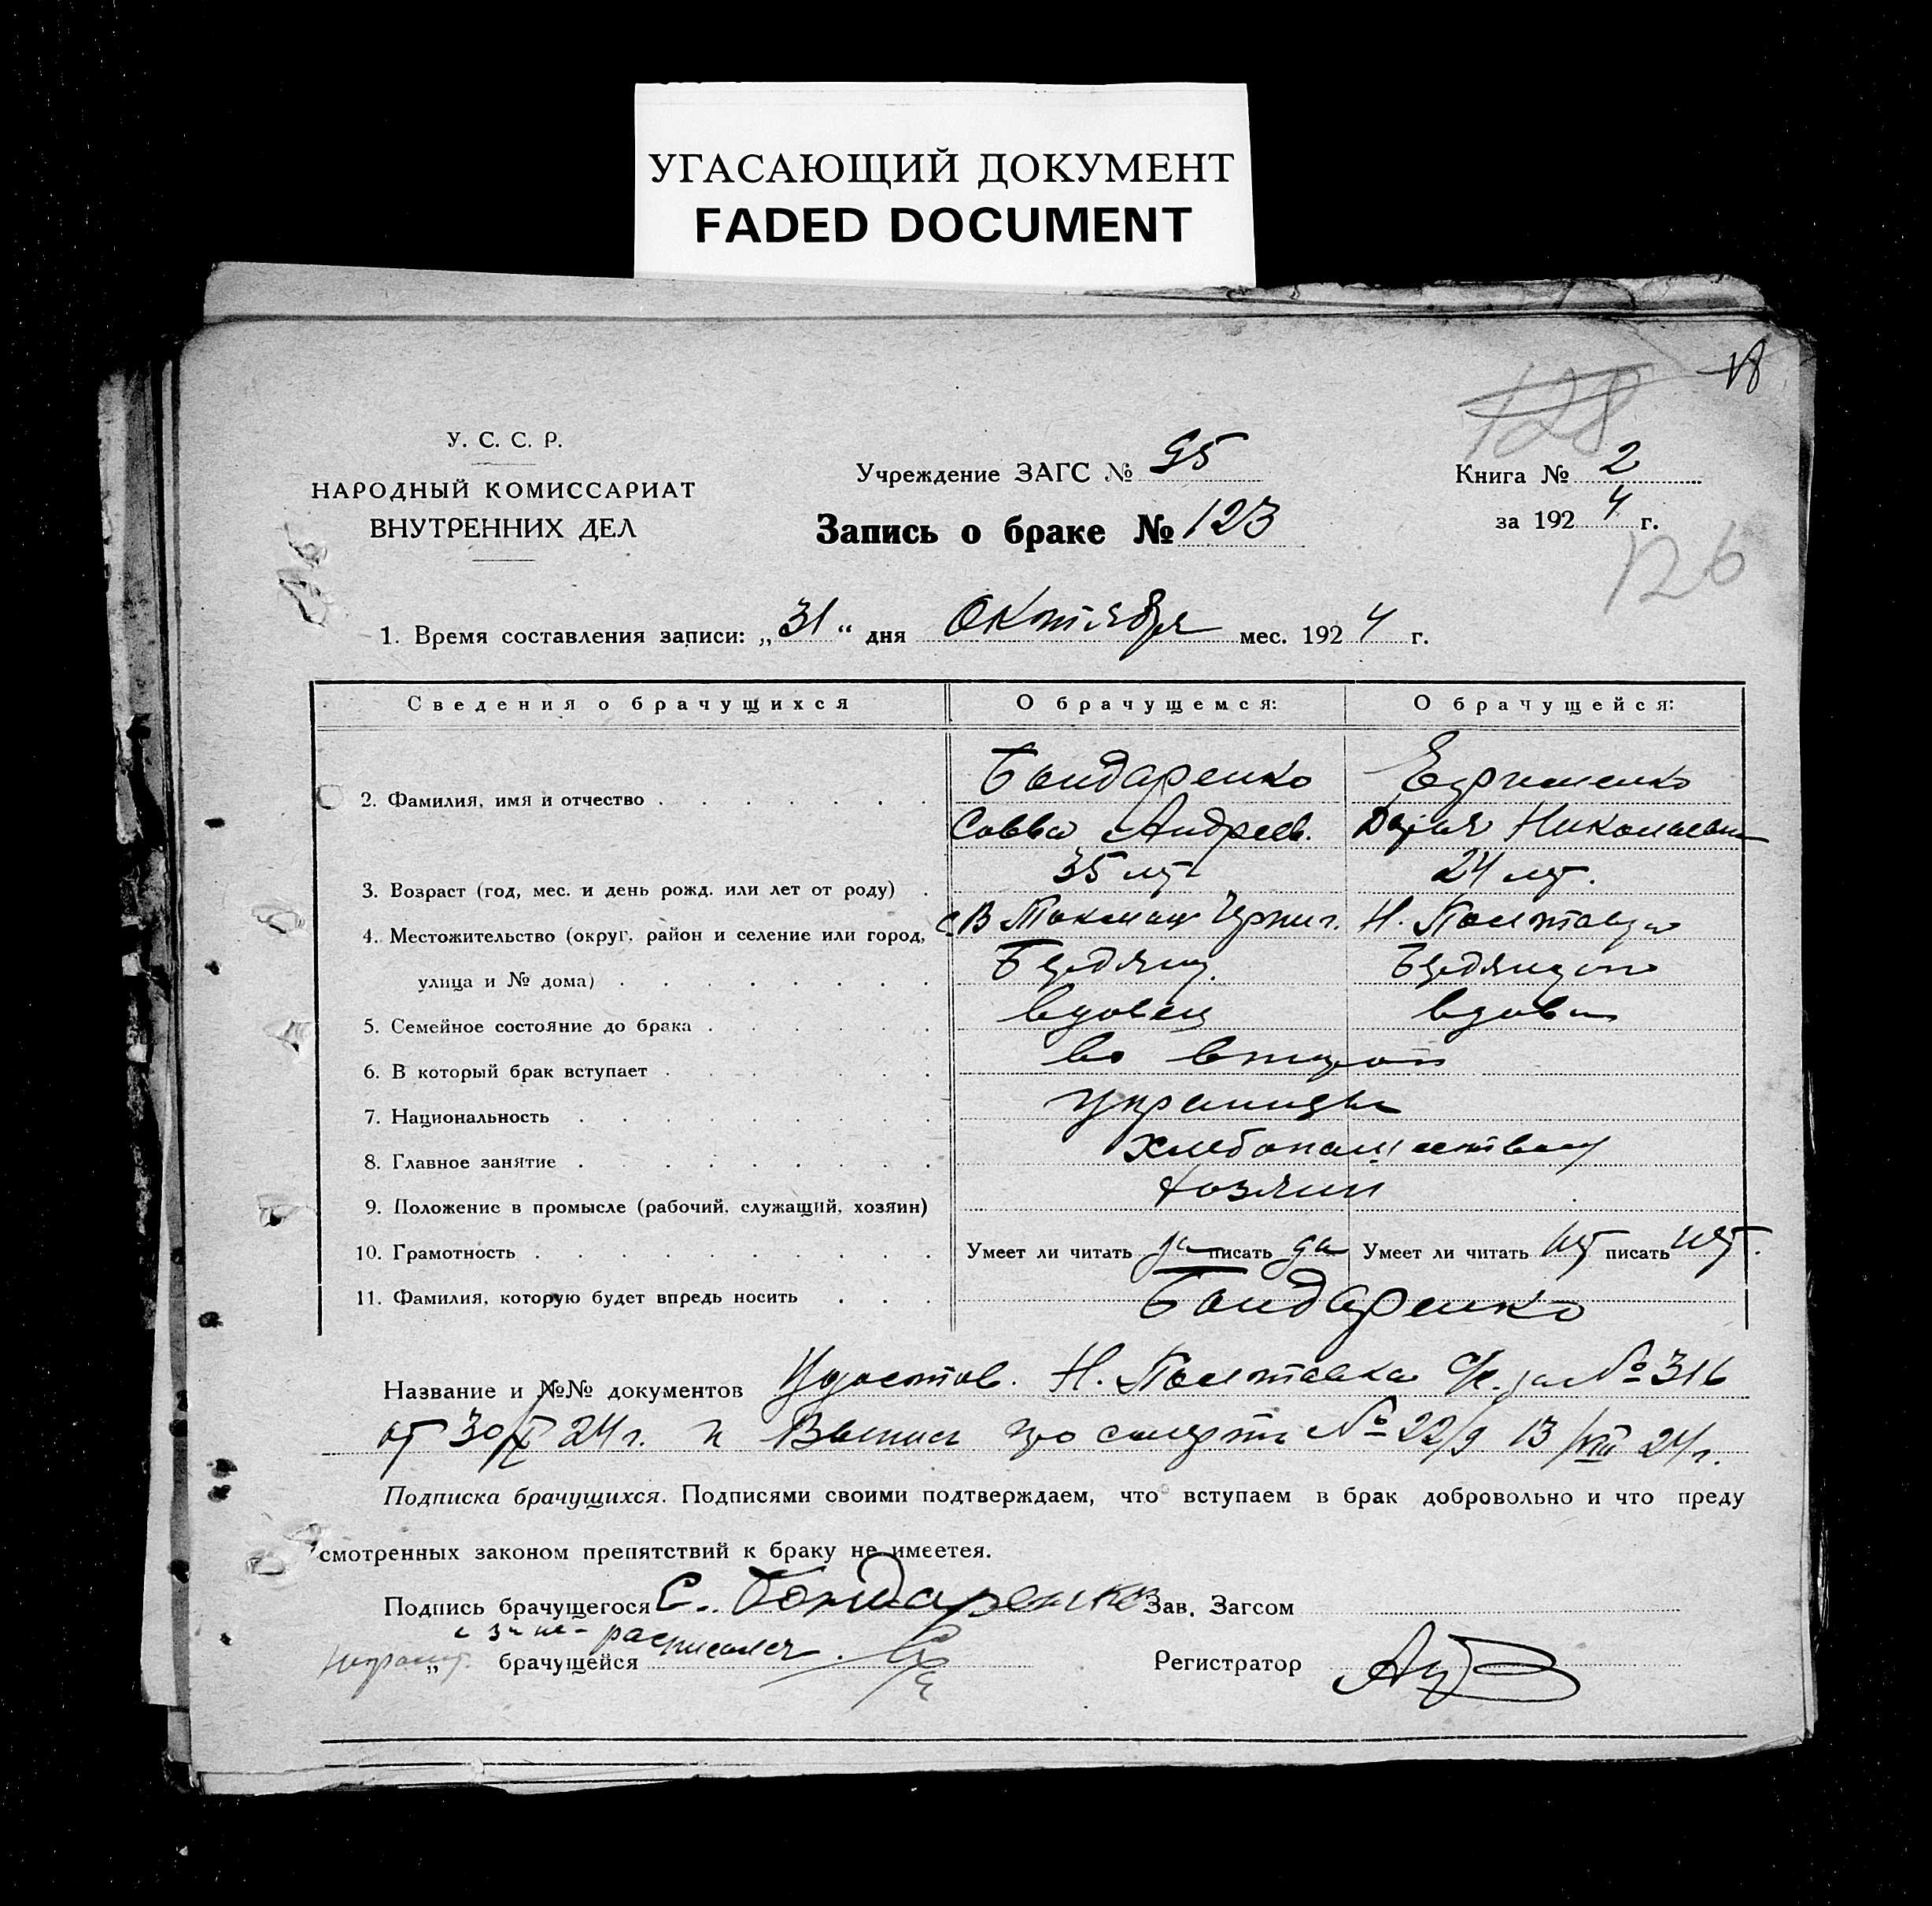 УГАСАЮЩИЙ ДОКУМЕНТ
FADED DOCUMENT
18
128
У. С. С. Р.
НАРОДНЫЙ КОМИССАРИАТ
ВНУТРЕННИХ ДЕЛ
Учреждение ЗАГС № 95
Запись о браке № 123
Книга № 2
за 1924 г.
126
1. Время составления записи: „31“ дня Октября мес. 1924 г.
Сведения о брачущихся О брачущемся: О брачущейся:
2. Фамилия, имя и отчество Бондаренко Ефименко
Савва Андреев. Дарья Николаевна
3. Возраст (год, мес. и день рожд. или лет от роду) 35 лет 24 лет.
4. Местожительство (округ, район и селение или город, с. В Токмак Черниг. Н. Полтавка
улица и № дома) Бердянц. Бердянцого
5. Семейное состояние до брака вдовец вдова
6. В который брак вступает во второй
7. Национальность украинцы
8. Главное занятие хлебопашеством
9. Положение в промысле (рабочий, служащий, хозяин) хозяин
10. Грамотность Умеет ли читать да писать да Умеет ли читать нет писать нет.
11. Фамилия, которую будет впредь носить Бондаренко
Название и №№ документов Удостов. Н. Полтавка С/С. за № 316
от 30/X 24 г. и Выпись про смерть № 22/9 13/VIII 24 г.
Подписка брачущихся. Подписями своими подтверждаем, что вступаем в брак добровольно и что преду
смотренных законом препятствий к браку не имеется.
Подпись брачущегося С. Бондаренко Зав. Загсом
неграмот. расписался
„ брачущейся Регистратор